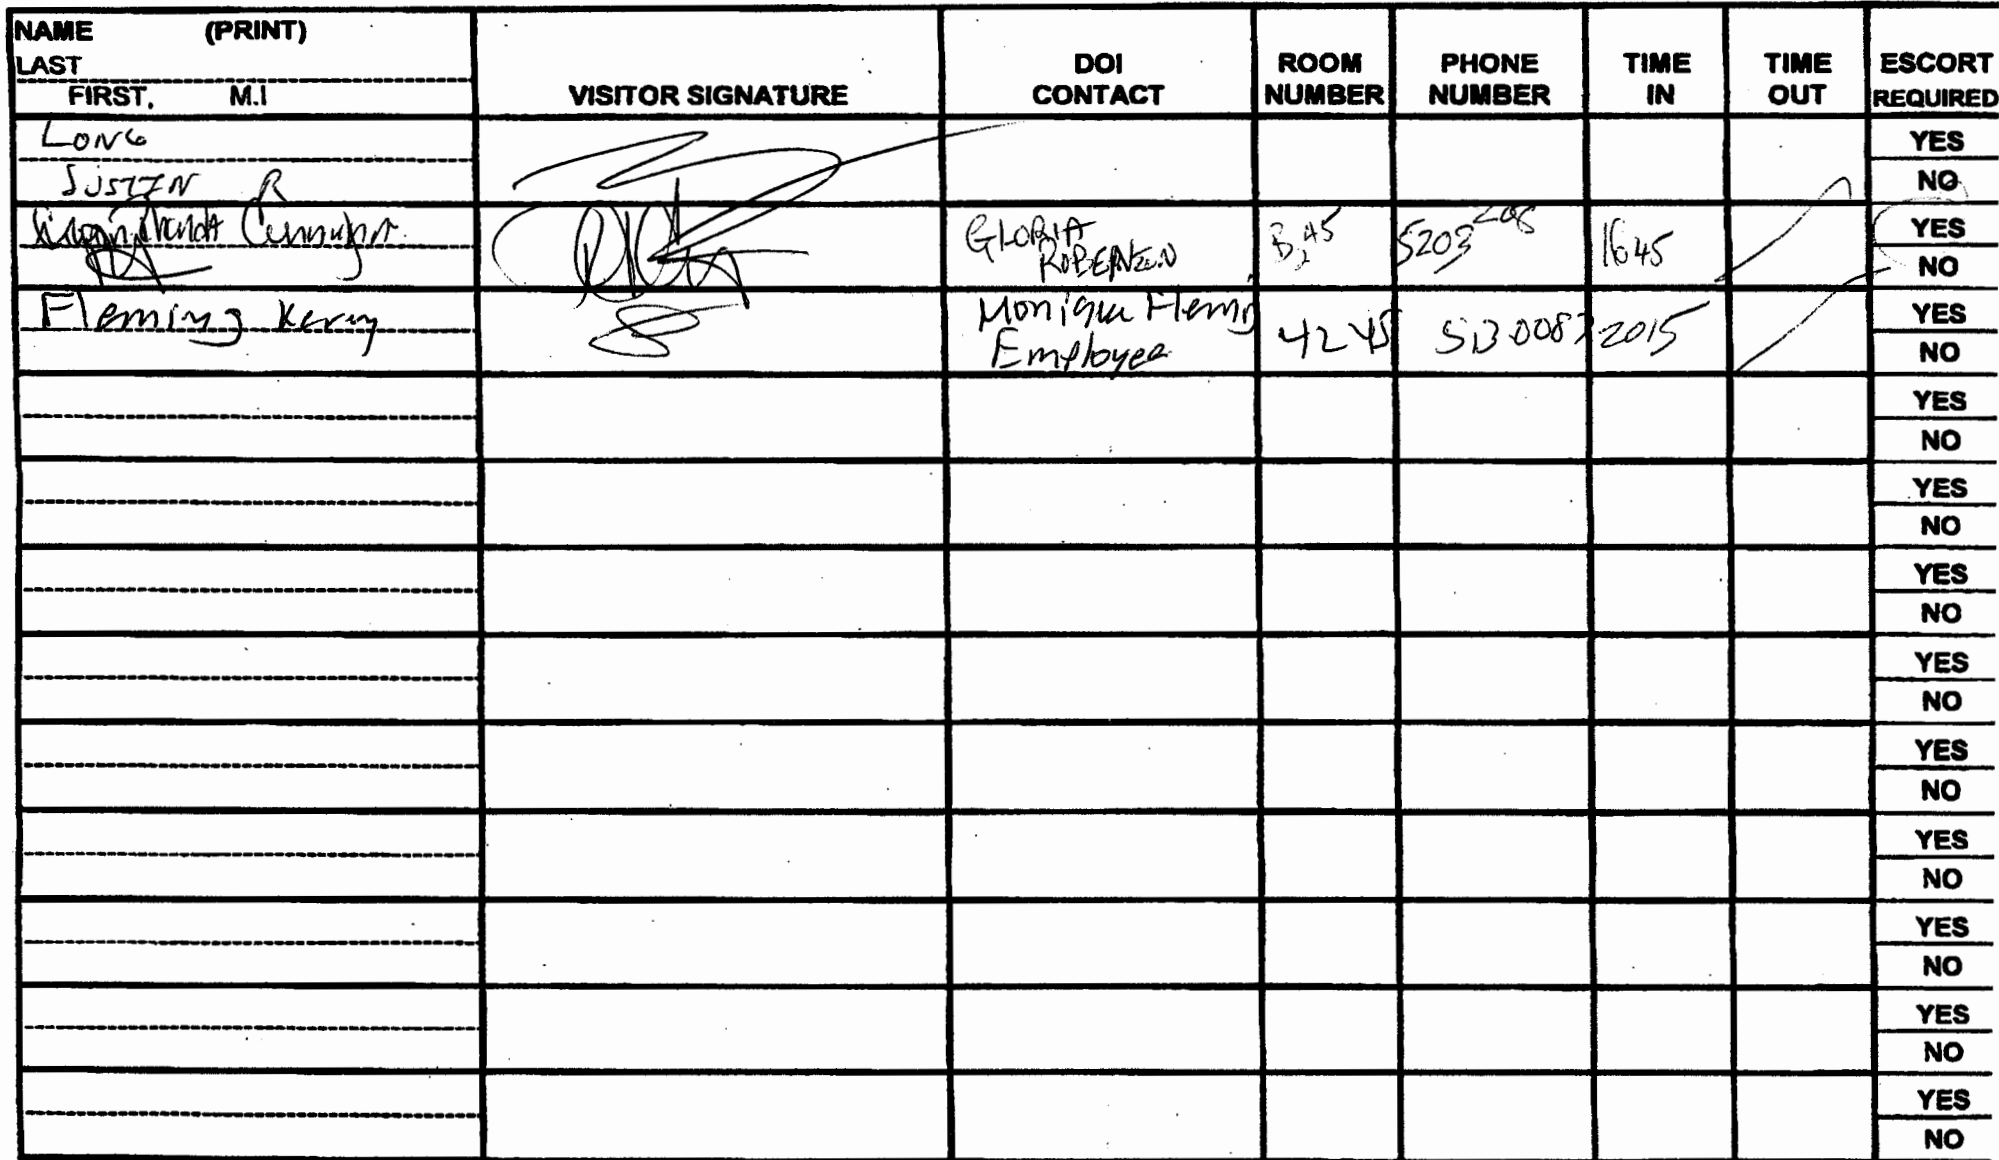 NAME (PRINT)
LAST
FIRST, M.I
VISITOR SIGNATURE
DOI CONTACT
ROOM NUMBER
PHONE NUMBER
TIME IN
TIME OUT
ESCORT REQUIRED
LONG
JUSTIN R
YES
NO
GLORIA
5203
1645
YES
NO
Fleming Kerry
Monique Flemi
Employee
4245
2015
YES
NO
YES
NO
YES
NO
YES
NO
YES
NO
YES
NO
YES
NO
YES
NO
YES
NO
YES
NO